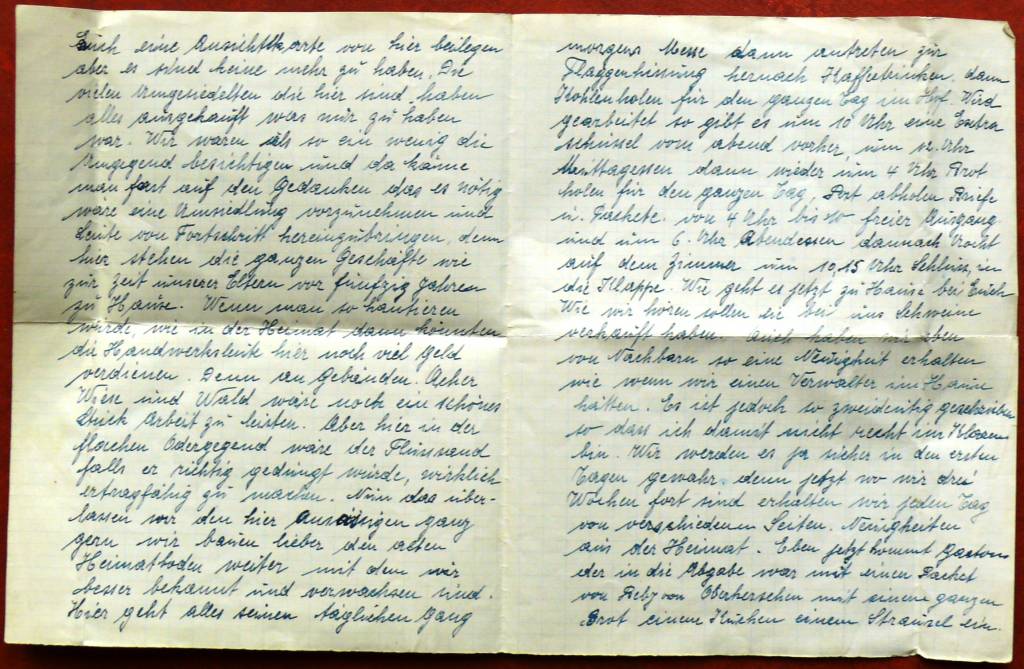 Euch eine Ansichtskarte von hier beilegen
aber es sind keine mehr zu haben. Die
vielen Umgesiedelten die hier sind, haben
alles ausgekauft was nur zu haben
war. Wir waren als so ein wenig die
Umgegend besichtigen und da käme
man fast auf den Gedanken das es nötig
wäre eine Umsiedlung vorzunehmen und
Leute von Fortschritt hereinzubringen, denn
hier stehen die ganzen Geschäfte wie
zur Zeit unserer Eltern vor fünfzig Jahren
zu Hause. Wenn man so hantieren
würde, wie in der Heimat dann könnten
die Handwerksleute hier noch viel Geld
verdienen. Denn an Gebäuden. Acker
Wiese und Wald wäre noch ein schönes
Stück Arbeit zu leisten. Aber hier in der
flachen Odergegend wäre der Flusssand
falls er richtig gedüngt würde, wirklich
ertragfähig zu machen. Nun das über-
lassen wir den hier Ansässigen ganz
gern wir bauen lieber den alten
Heimatboden weiter mit dem wir
besser bekannt und verwachsen sind.
Hier geht alles seinen täglichen Gang
morgens Messe dann antreten zur
Flaggenhissung hernach Kaffeetrinken, dann
Kohlenholen für den ganzen Tag im Hof. Wird
gearbeitet so gibt es um 10 Uhr eine Extra
schüssel vom abend vorher, um 12. Uhr
Mittagessen dann wieder um 4 Uhr Brot
holen für den ganzen Tag, Post abholen Briefe
u. Packete. von 4 Uhr bis 10 freier Ausgang
und um 6. Uhr Abendessen dannach
auf dem Zimmer um 10,15 Uhr Schluss, in
die Klappe. Wie geht es jetzt zu Hause bei Euch
Wie wir hören sollen sie bei uns Schweine
verkauft haben. Auch haben wir eben
von Nachbarn so eine Neuigkeit erhalten
wie wenn wir einen Verwalter im Hause
hätten. Es ist jedoch so zweideutig geschrieben
so dass ich damit nicht recht im Klaren
bin. Wir werden es ja sicher in den ersten
Tagen gewahr. denn jetzt wo wir drei
Wochen fort sind erhalten wir jeden Tag
von verschiedenen Seiten. Neuigkeiten
aus der Heimat. Eben jetzt kommt
der in die Abgabe war mit einen Packet
von von mit einem ganzen
Brot einem Kuchen einem Streusel ein.